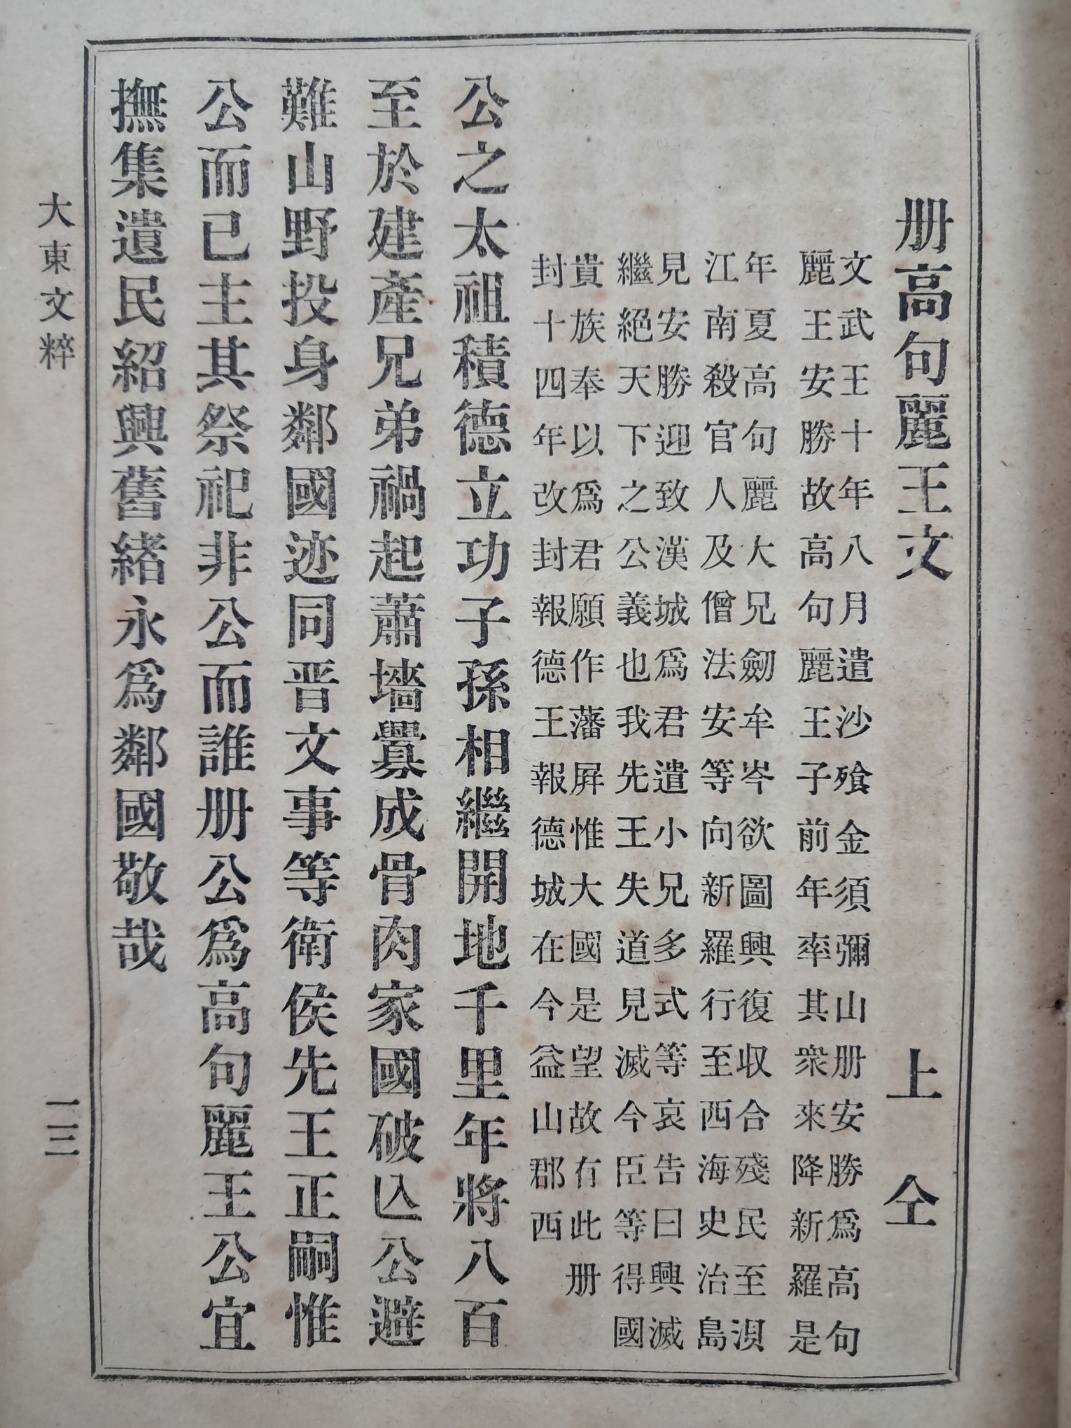 册高句麗王文 上仝
文武王十年八月遣沙飱金須彌山册安勝爲高句
麗王安勝故高句麗王子前年率其衆來降新羅是
年夏高句麗大兄劒牟岑欲圖興復収合殘民至浿
江南殺官人及僧法安等向新羅行至西海史治島
見安勝迎致漢城爲君遣小兄多式等哀告曰興滅
繼絕天下之公義也我先王失道見滅今臣等得國
貴族奉以爲君願作藩屛惟大國是望故有此册
封十四年改封報德王報德城在今益山郡西
公之太祖積德立功子孫相繼開地千里年將八百
至於建產兄弟禍起蕭墻釁成骨肉家國破亾公避
難山野投身鄰國迹同晋文事等衛侯先王正嗣惟
公而已主其祭祀非公而誰册公爲高句麗王公宜
撫集遺民紹興舊緖永爲鄰國敬哉
大東文粹
一三